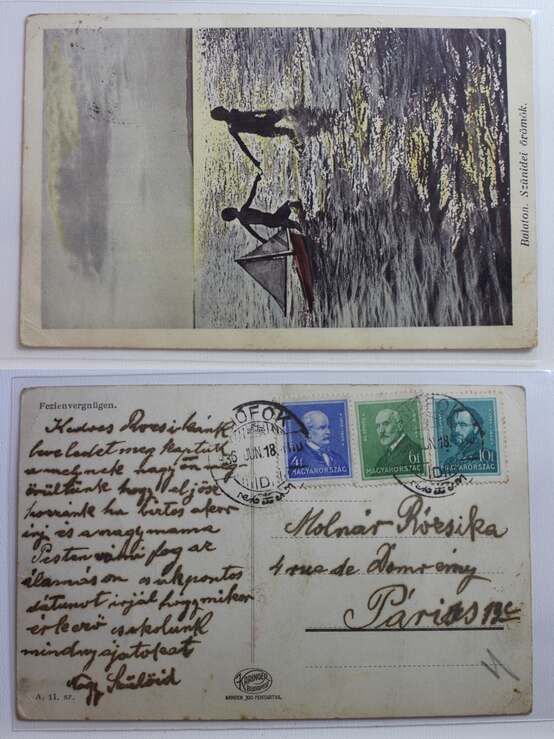 Balaton. Szünidei örömök.
Ferienvergnügen.
Kedves Rozsikánk
leveledet meg kaptuk
amelynek nagyon meg
örültünk hogy eljösz
hozzánk ha biztos akor
én és a nagymama
Pesten fog az
álamáson csak pontos
dátumot irjál hogy mikor
érkező csokolunk
mindnyájatokat
Nagy Szülőid
A. 11. sz.
SIÓFOK
36 JUN 18
4f
MAGYARORSZÁG
6f
MAGYARORSZÁG
10f
MAGYARORSZÁG
JUN 18
Molnár Rózsika
4 rue de Domrémy
Páris 13e
KARINGER
BUDAPEST
MINDEN JOG FENTARTVA.